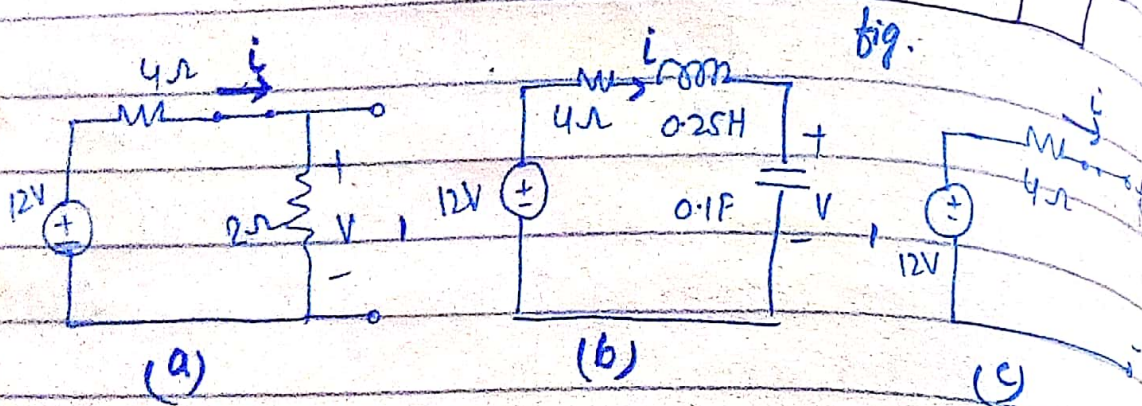 fig.
4Ω i
12V + - 2Ω + V - ,
(a)
i
4Ω 0.25H
12V + - 0.1F + V - ,
(b)
i
4Ω
12V + -
(c)